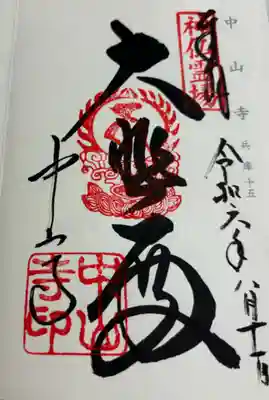 中山寺 兵庫十五
令和六年八月十一日
奉拝
神仏霊場
大悲殿
中山寺
中山
寺印